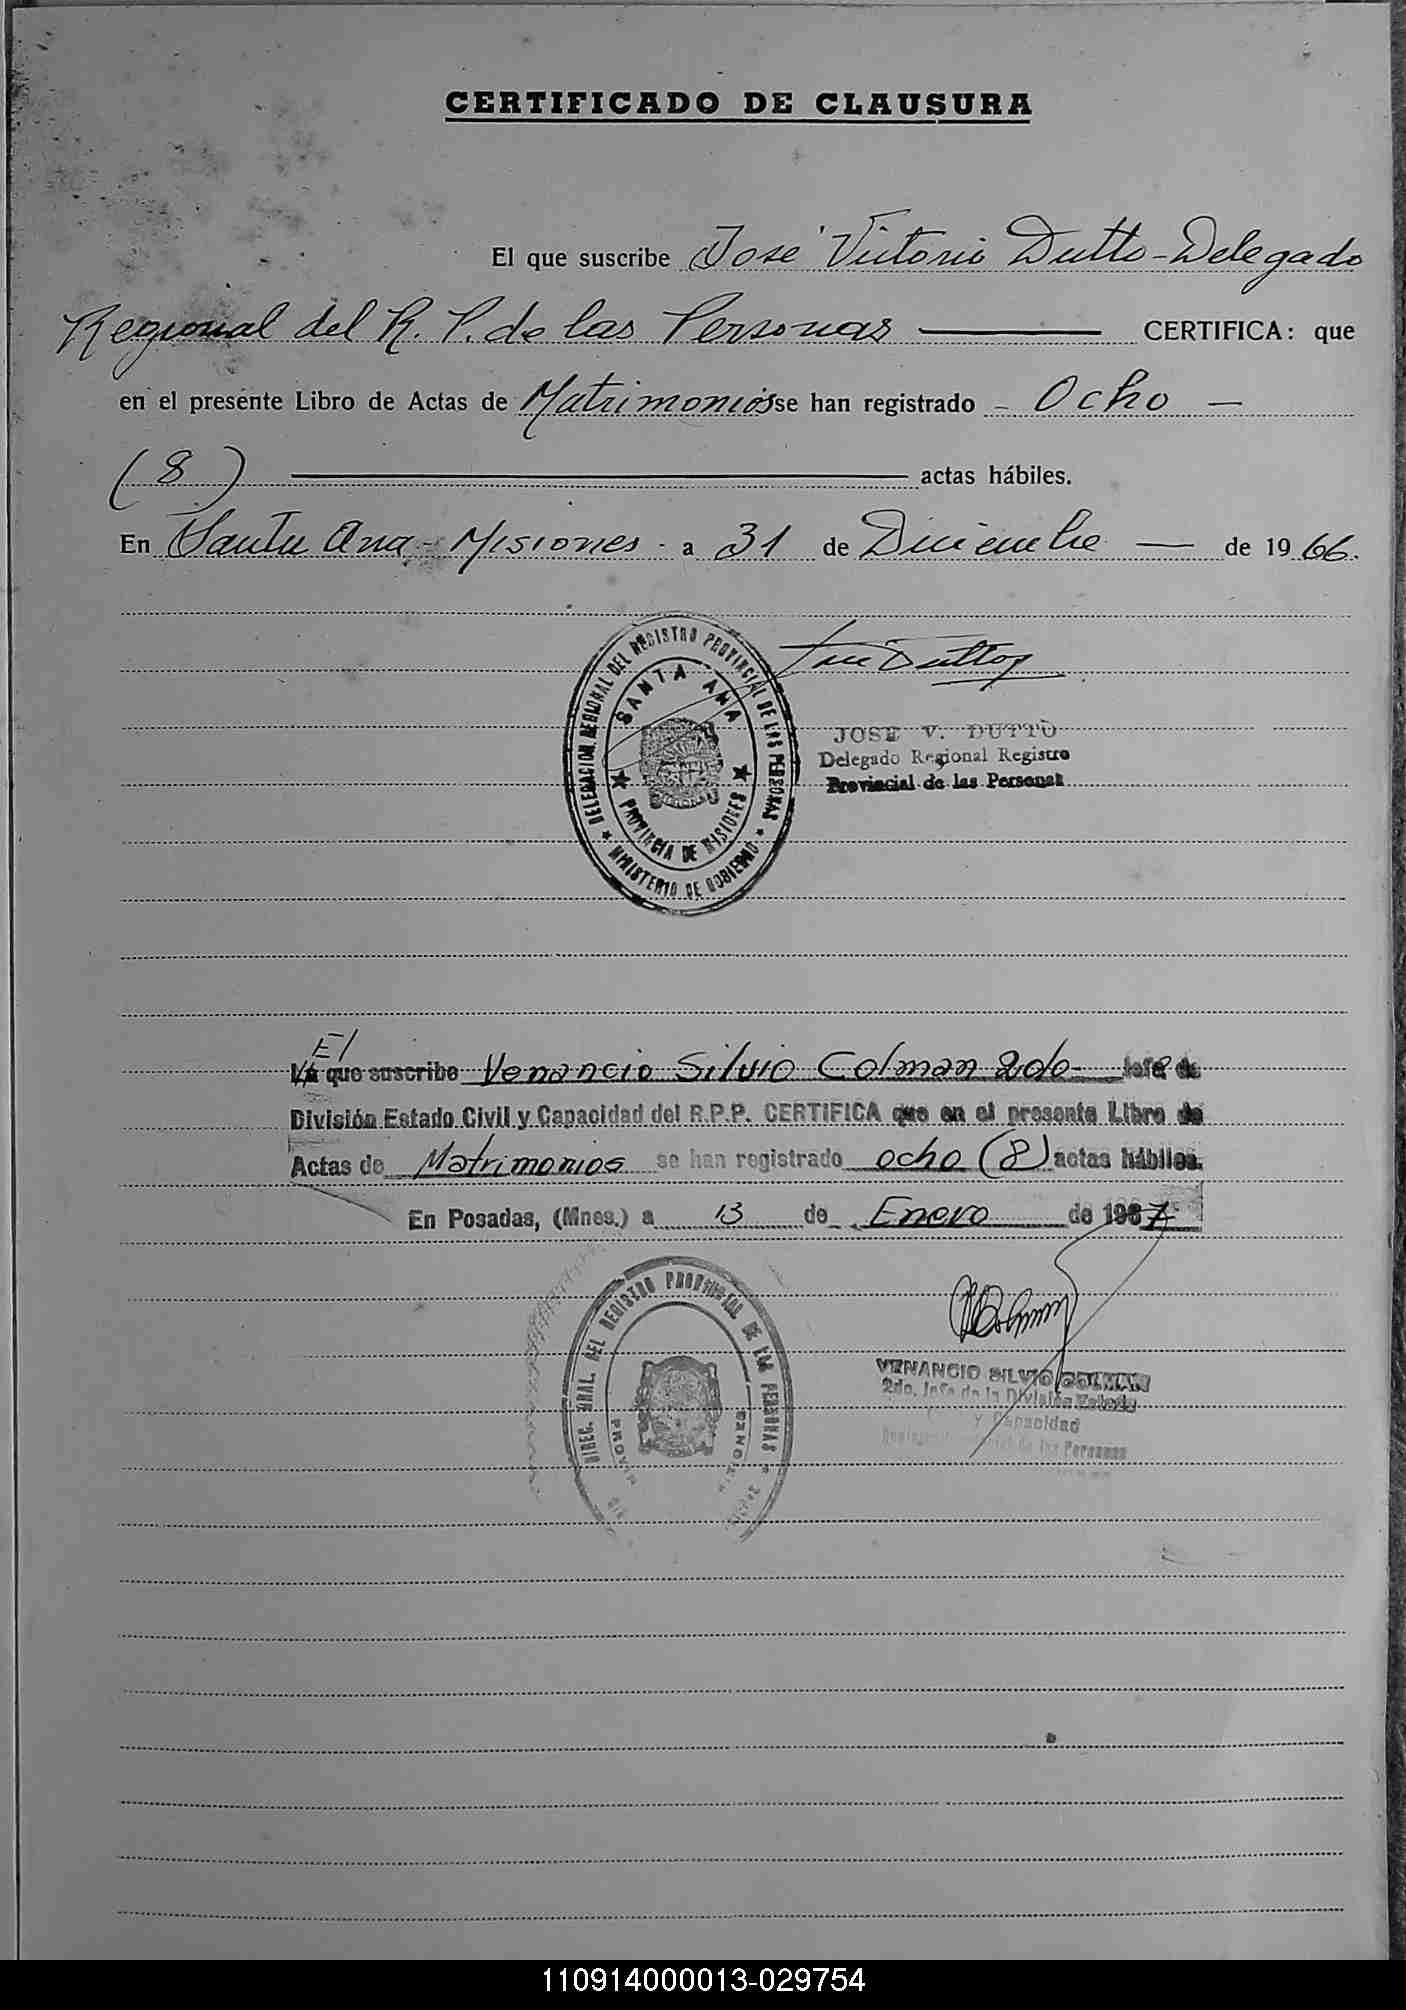 CERTIFICADO DE CLAUSURA
El que suscribe José Victorio Dutto - Delegado
Regional del R. P. de las Personas — CERTIFICA: que
en el presente Libro de Actas de Matrimonios se han registrado - Ocho -
(8) — actas hábiles.
En Santa Ana - Misiones - a 31 de Diciembre — de 1966.
DELEGACION REGIONAL DEL REGISTRO PROVINCIAL DE LAS PERSONAS
SANTA ANA
PROVINCIA DE MISIONES
MINISTERIO DE GOBIERNO
José Dutto
JOSE V. DUTTO
Delegado Regional Registro
Provincial de las Personas
El
La que suscribe Venancio Silvio Colman 2do- Jefe de
División Estado Civil y Capacidad del R.P.P. CERTIFICA que en el presente Libro de
Actas de Matrimonios se han registrado ocho (8) actas hábiles.
En Posadas, (Mnes.) a 13 de Enero de 1967
DIREC. GRAL. DEL REGISTRO PROVINCIAL DE LAS PERSONAS
VColman
VENANCIO SILVIO COLMAN
2do. Jefe de la División Estado
y Capacidad
de las Personas
110914000013-029754